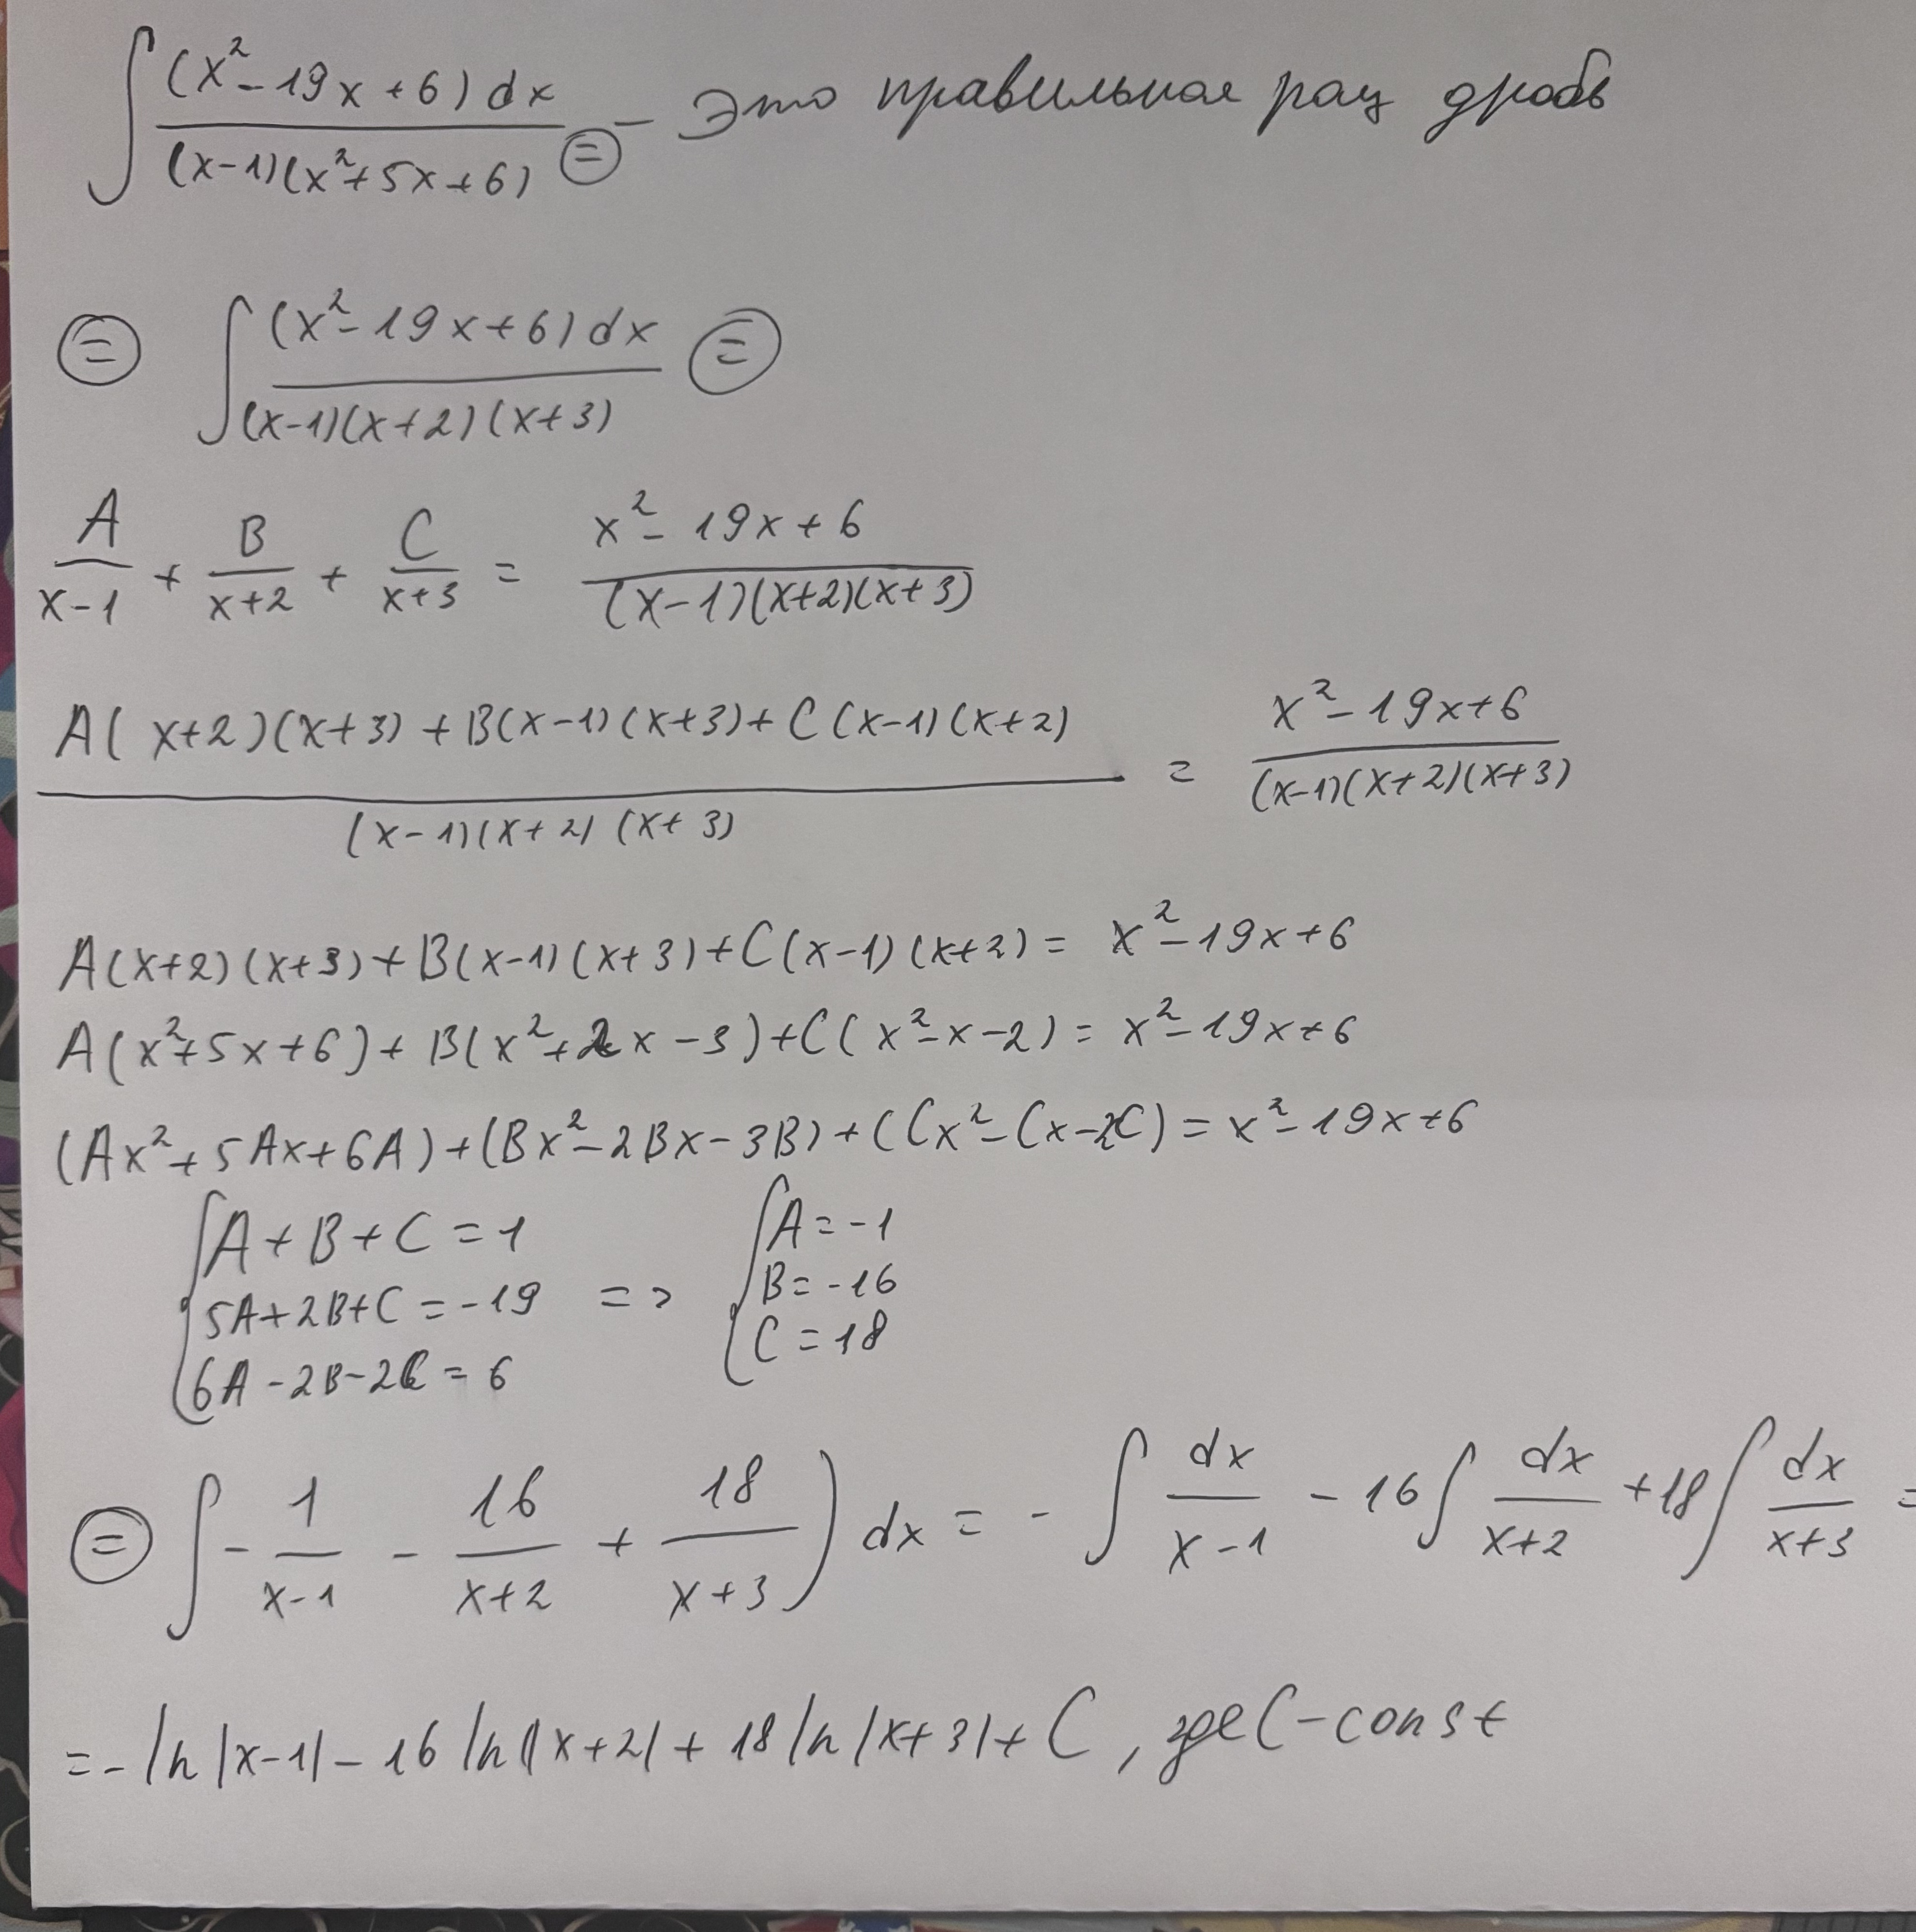 ∫ (x² - 19x + 6) dx / (x-1)(x² + 5x + 6) ⊜ - Это правильная рац дробь
⊜ ∫ (x² - 19x + 6) dx / (x-1)(x+2)(x+3) ⊜
A/(x-1) + B/(x+2) + C/(x+3) = (x² - 19x + 6) / (x-1)(x+2)(x+3)
(A(x+2)(x+3) + B(x-1)(x+3) + C(x-1)(x+2)) / (x-1)(x+2)(x+3) = (x² - 19x + 6) / (x-1)(x+2)(x+3)
A(x+2)(x+3) + B(x-1)(x+3) + C(x-1)(x+2) = x² - 19x + 6
A(x² + 5x + 6) + B(x² + 2x - 3) + C(x² - x - 2) = x² - 19x + 6
(Ax² + 5Ax + 6A) + (Bx² - 2Bx - 3B) + (Cx² - Cx - 2C) = x² - 19x + 6
{ A + B + C = 1
5A + 2B + C = -19
6A - 2B - 2C = 6
=> { A = -1
B = -16
C = 18
⊜ ∫ - 1/(x-1) - 16/(x+2) + 18/(x+3) ) dx = - ∫ dx/(x-1) - 16 ∫ dx/(x+2) + 18 ∫ dx/(x+3) =
= - ln |x-1| - 16 ln |x+2| + 18 ln |x+3| + C, где C - const